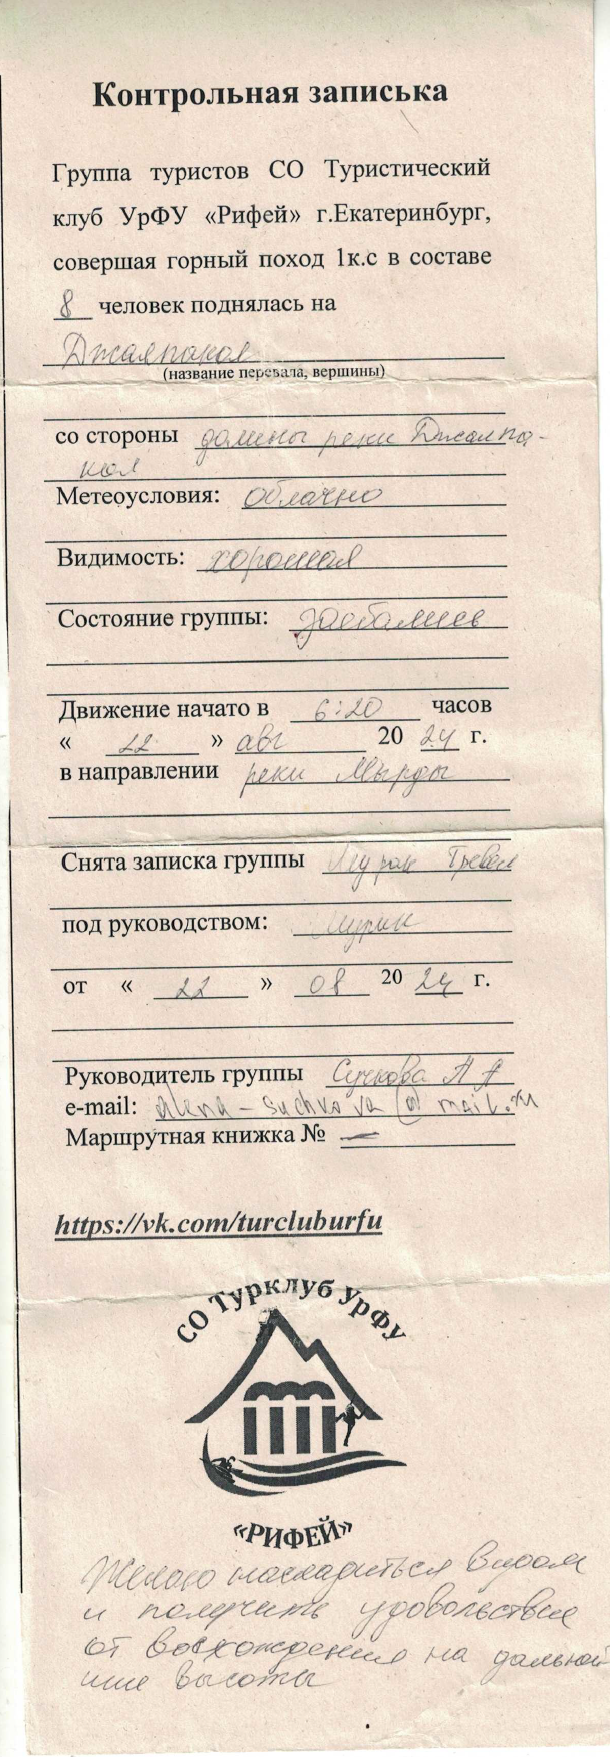 Контрольная записька
Группа туристов СО Туристический
клуб УрФУ «Рифей» г.Екатеринбург,
совершая горный поход 1к.с в составе
8 человек поднялась на
Джалпакол
(название перевала, вершины)
со стороны долины реки Джалпа-
кол
Метеоусловия: облачно
Видимость: хорошая
Состояние группы: заебались
Движение начато в 6:20 часов
« 22 » авг 20 24 г.
в направлении реки Мырды
Снята записка группы
под руководством:
от « 22 » 08 20 24 г.
Руководитель группы Сучкова А А
e-mail: alena-suchkova@mail.ru
Маршрутная книжка № —
https://vk.com/turcluburfu
СО Турклуб УрФУ
«РИФЕЙ»
Желаю насладиться видом
и получить удовольствие
от восхождения на дальней
шие высоты